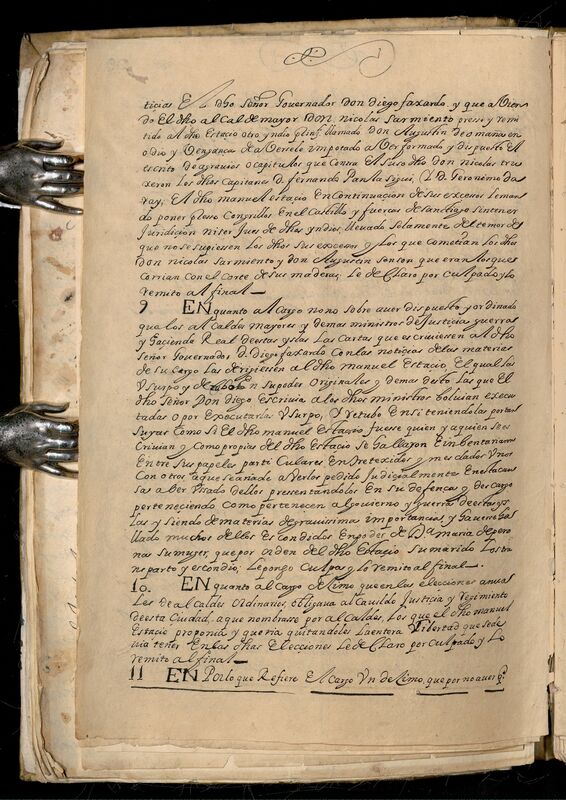 ticias El dho Señor Governador Don diego faxardo y que avien
do El dho alcalde mayor Don nicolas Sarmiento preso y remi
tido al dho estacio otro yndio llamado Don Augustin de
odio y Venganza de averle imputado aver formado y dispuesto El
escrito de agravios o capitulos que contra El suso dho Don nicolas tru
xeron Los dhos Capitanes D. fernando y D. Geronimo
El dho manuel estacio En continuacion de sus excesos Le man
do poner preso Con grillos En el Castillo y fuerza de santhiago sin tener
Juridicion ni ser Jues de dhos yndios, llevado solamente del temor de
que no se supiesen Los dhos sus excesos y Los que cometian Los dhos
Don nicolas Sarmiento y Don Augustin sonson que eran Los que
corrian Con el corte de sus maderas, Le declaro por culpado y lo
remito al final—
9 EN quanto al Cargo nono sobre aver dispuesto y ordinado
que los alcaldes mayores y demas ministros de Justicia guerra
y hacienda Real de estas yslas Las Cartas que escriviesen al dho
Señor Governador D. diego faxardo Con las noticias de las materias
de su cargo Las dirigiesen al dho manuel Estacio, El qual las
Vsurpo y En su poder Originales y demas desto Las que El
dho Señor Don Diego escrivia a los dhos ministros bolvian execu
tadas o por executarlas Vsurpo, y retubo En si teniendolas por tan
suyas Como si El dho manuel Estacio fuese quien y a quien se es
crivian y Como propias del dho Estacio se hallaron Ynbentariadas
Entre sus papeles particulares Entretexidos y mesclados Unos
Con otros
sas aber Vsado dellos presentandolos En su defensa y descargo
perteneciendo como pertenecen al govierno y guerra de estas ys
las y siendo de materias de gravissima importancia, y haverse ha
llado muchos dellos Escondidos En poder de Da maria de
nas su muger, que por orden del dho Estacio su marido Los tra
nsporto y escondio, Le pongo Culpa y lo remito al final—
10. EN quanto al Cargo decimo que en las elecciones anua
Les de alcaldes Ordinarios, obligava al Cavildo Justicia y regimiento
de esta Ciudad, a que nombrase por alcaldes, Los que El dho manuel
Estacio proponia y queria quitandoles La entera libertad que se de
via tener En las dhas Elecciones Le declaro por culpado y Lo
remito al final—
11 EN Por lo que Refiere El cargo Undecimo, que por no aver q